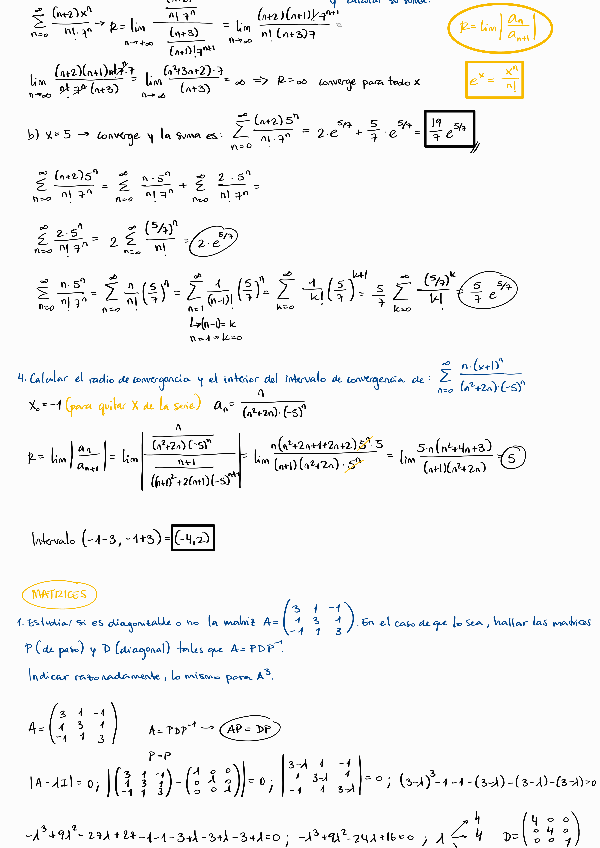 y calcular su suma.
∑_{n=0}^{∞} (n+2)x^n / n!·7^n → R = lim_{n→+∞} ((n+2) / n!·7^n) / ((n+3) / (n+1)!7^{n+1}) = lim_{n→∞} (n+2)(n+1)!·7^{n+1} / n!(n+3)7^n =
R = lim |a_n / a_{n+1}|
lim_{n→∞} (n+2)(n+1)n!·7^n·7 / n!·7^n(n+3) = lim_{n→∞} (n²+3n+2)·7 / (n+3) = ∞ ⇒ R=∞ converge para todo x
e^x = x^n / n!
b) x=5 → converge y la suma es: ∑_{n=0}^{∞} (n+2)5^n / n!·7^n = 2·e^{5/7} + 5/7·e^{5/7} = 19/7 e^{5/7}
∑_{n=0}^{∞} (n+2)5^n / n!7^n = ∑_{n=0}^{∞} n·5^n / n!7^n + ∑_{n=0}^{∞} 2·5^n / n!7^n =
∑_{n=0}^{∞} 2·5^n / n!7^n = 2 ∑_{n=0}^{∞} (5/7)^n / n! = 2·e^{5/7}
∑_{n=0}^{∞} n·5^n / n!7^n = ∑_{n=0}^{∞} n/n! (5/7)^n = ∑_{n=1}^{∞} 1/(n-1)! (5/7)^n = ∑_{k=0}^{∞} 1/k! (5/7)^{k+1} = 5/7 ∑_{k=0}^{∞} (5/7)^k / k! = 5/7 e^{5/7}
↳(n-1)=k
n=1→k=0
4. Calcular el radio de convergencia y el interior del intervalo de convergencia de: ∑_{n=0}^{∞} n·(x+1)^n / (n²+2n)·(-5)^n
X₀=-1 (para quitar X de la serie) a_n = n / (n²+2n)·(-5)^n
R = lim |a_n / a_{n+1}| = lim |(n / (n²+2n)(-5)^n) / (n+1 / ((n+1)²+2(n+1)(-5)^{n+1})| = lim n(n²+2n+1+2n+2)5^n·5 / (n+1)(n²+2n)·5^n = lim 5·n(n²+4n+3) / (n+1)(n²+2n) = 5
Intervalo (-1-3, -1+3) = (-4,2)
MATRICES
1. Estudiar si es diagonizable o no la matriz A = (3 1 -1; 1 3 1; -1 1 3). En el caso de que lo sea, hallar las matrices
P (de paso) y D (diagonal) tales que A=PDP⁻¹.
Indicar razonadamente, lo mismo para A³.
A = (3 1 -1; 1 3 1; -1 1 3) A=PDP⁻¹ → AP = DP
P-P
|A-λI|=0; |(3 1 -1; 1 3 1; -1 1 3) - (λ 0 0; 0 λ 0; 0 0 λ)| = 0; |3-λ 1 -1; 1 3-λ 1; -1 1 3-λ| = 0; (3-λ)³-1-1-(3-λ)-(3-λ)-(3-λ)=0
-λ³+9λ²-27λ+27-1-1-3+λ-3+λ-3+λ=0; -λ³+9λ²-24λ+16=0; λ 4 4 D = (4 0 0; 0 4 0; 0 0 1)